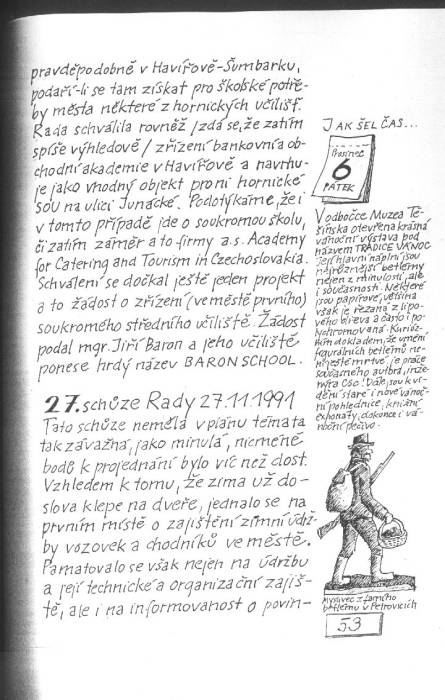 pravděpodobně v Havířově-Šumbarku,
podaří-li se tam získat pro školské potře-
by města některé z hornických učilišť.
Rada schválila rovněž /zdá se, že zatím
spíše výhledově/ zřízení bankovní a ob-
chodní akademie v Havířově a navrhu-
je jako vhodný objekt pro ni hornické
SOU na ulici Junácké. Podotýkáme, že i
v tomto případě jde o soukromou školu,
či zatím záměr a to firmy a.s. Academy
for Catering and Tourism in Czechoslovakia.
Schválení se dočkal ještě jeden projekt
a to žádost o zřízení (ve městě prvního)
soukromého středního učiliště. Žádost
podal mgr. Jiří Baron a jeho učiliště
ponese hrdý název BARON SCHOOL.
27. schůze Rady 27.11.1991
Tato schůze neměla v plánu témata
tak závažná, jako minulá, nicméně
bodů k projednání bylo víc než dost.
Vzhledem k tomu, že zima už do-
slova klepe na dveře, jednalo se na
prvním místě o zajištění zimní údrž-
by vozovek a chodníků ve městě.
Pamatovalo se však nejen na údržbu
a její technické a organizační zajiš-
tě, ale i na informovanost o povin-
JAK ŠEL ČAS...
Prosinec
6
PÁTEK
V odbočce Muzea Tě-
šínska otevřena krásná
vánoční výstava pod
názvem TRADICE VÁNOC
Její hlavní náplní jsou
nejrůznější betlémy
nejen z minulosti, ale
i současnosti. Některé
jsou papírové, většina
však je řezaná z lipo-
vého dřeva a často i po-
lychromovaná. Kurióz-
ním dokladem, že umění
figurálních betlémů ne-
ní ještě mrtvé, je práce
současného autora, inže-
nýra CSc! Dále jsou k vi-
dění staré i nové váno-
ční pohlednice, knižní
exponáty, dokonce i vá-
noční pečivo.
Myslivec z farního
betlému v Petrovicích
53